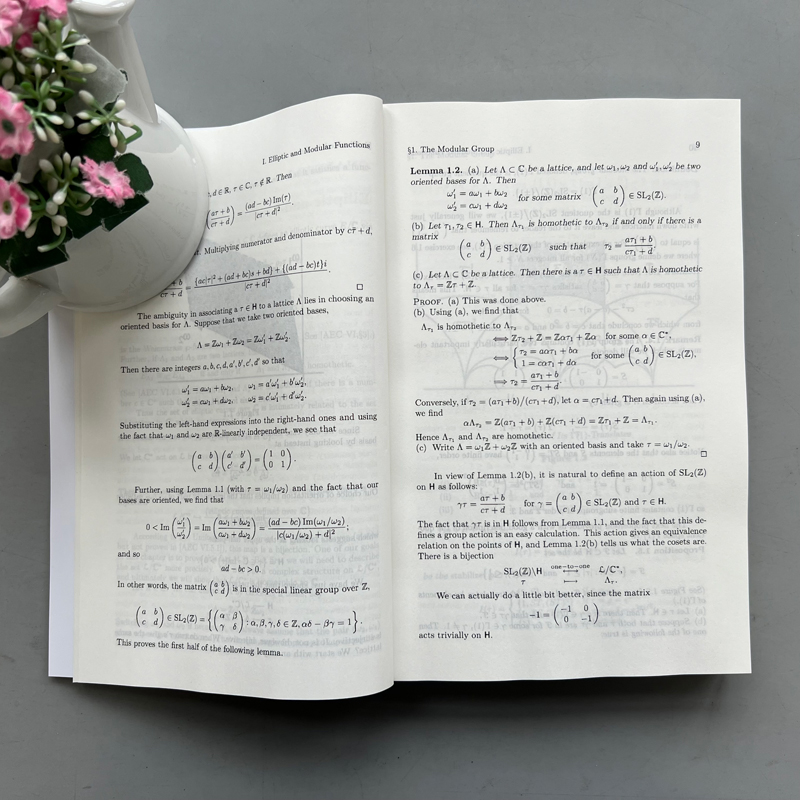 I. Elliptic and Modular Functions
, d ∈ ℝ, τ ∈ ℂ, τ ∉ ℝ. Then
(aτ + b)/(cτ + d) = (ad − bc) Im(τ) / |cτ + d|².
Multiplying numerator and denominator by cτ̄ + d,
+ b / cτ + d = {ac|τ|² + (ad + bc)s + bd} + {(ad − bc)t}i / |cτ + d|² .
□
The ambiguity in associating a τ ∈ H to a lattice Λ lies in choosing an
oriented basis for Λ. Suppose that we take two oriented bases,
Λ = ℤω₁ + ℤω₂ = ℤω₁′ + ℤω₂′.
Then there are integers a, b, c, d, a′, b′, c′, d′ so that
ω₁′ = aω₁ + bω₂, ω₁ = a′ω₁′ + b′ω₂′,
ω₂′ = cω₁ + dω₂, ω₂ = c′ω₁′ + d′ω₂′.
Substituting the left-hand expressions into the right-hand ones and using
the fact that ω₁ and ω₂ are ℝ-linearly independent, we see that
(a b; c d)(a′ b′; c′ d′) = (1 0; 0 1).
Further, using Lemma 1.1 (with τ = ω₁/ω₂) and the fact that our
bases are oriented, we find that
0 < Im (ω₁′/ω₂′) = Im ((aω₁ + bω₂)/(cω₁ + dω₂)) = (ad − bc) Im(ω₁/ω₂) / |c(ω₁/ω₂) + d|²;
and so
ad − bc > 0.
In other words, the matrix (a b; c d) is in the special linear group over ℤ,
(a b; c d) ∈ SL₂(ℤ) = {(α β; γ δ) : α, β, γ, δ ∈ ℤ, αδ − βγ = 1}.
This proves the first half of the following lemma.
§1. The Modular Group 9
Lemma 1.2. (a) Let Λ ⊂ ℂ be a lattice, and let ω₁, ω₂ and ω₁′, ω₂′ be two
oriented bases for Λ. Then
ω₁′ = aω₁ + bω₂
ω₂′ = cω₁ + dω₂ for some matrix (a b; c d) ∈ SL₂(ℤ).
(b) Let τ₁, τ₂ ∈ H. Then Λτ₁ is homothetic to Λτ₂ if and only if there is a
matrix
(a b; c d) ∈ SL₂(ℤ) such that τ₂ = (aτ₁ + b)/(cτ₁ + d).
(c) Let Λ ⊂ ℂ be a lattice. Then there is a τ ∈ H such that Λ is homothetic
to Λτ = ℤτ + ℤ.
PROOF. (a) This was done above.
(b) Using (a), we find that
Λτ₁ is homothetic to Λτ₂
⟺ ℤτ₂ + ℤ = ℤατ₁ + ℤα for some α ∈ ℂ*,
⟺ { τ₂ = aατ₁ + bα
1 = cατ₁ + dα for some (a b; c d) ∈ SL₂(ℤ),
⟹ τ₂ = (aτ₁ + b)/(cτ₁ + d).
Conversely, if τ₂ = (aτ₁ + b)/(cτ₁ + d), let α = cτ₁ + d. Then again using (a),
we find
αΛτ₂ = ℤ(aτ₁ + b) + ℤ(cτ₁ + d) = ℤτ₁ + ℤ = Λτ₁.
Hence Λτ₁ and Λτ₂ are homothetic.
(c) Write Λ = ω₁ℤ + ω₂ℤ with an oriented basis and take τ = ω₁/ω₂.
□
In view of Lemma 1.2(b), it is natural to define an action of SL₂(ℤ)
on H as follows:
γτ = (aτ + b)/(cτ + d) for γ = (a b; c d) ∈ SL₂(ℤ) and τ ∈ H.
The fact that γτ is in H follows from Lemma 1.1, and the fact that this de-
fines a group action is an easy calculation. This action gives an equivalence
relation on the points of H, and Lemma 1.2(b) tells us what the cosets are.
There is a bijection
SL₂(ℤ)\H one-to-one ⟷ ℒ/ℂ*,
τ ⟷ Λτ.
We can actually do a little bit better, since the matrix
−1 = (−1 0; 0 −1)
acts trivially on H.